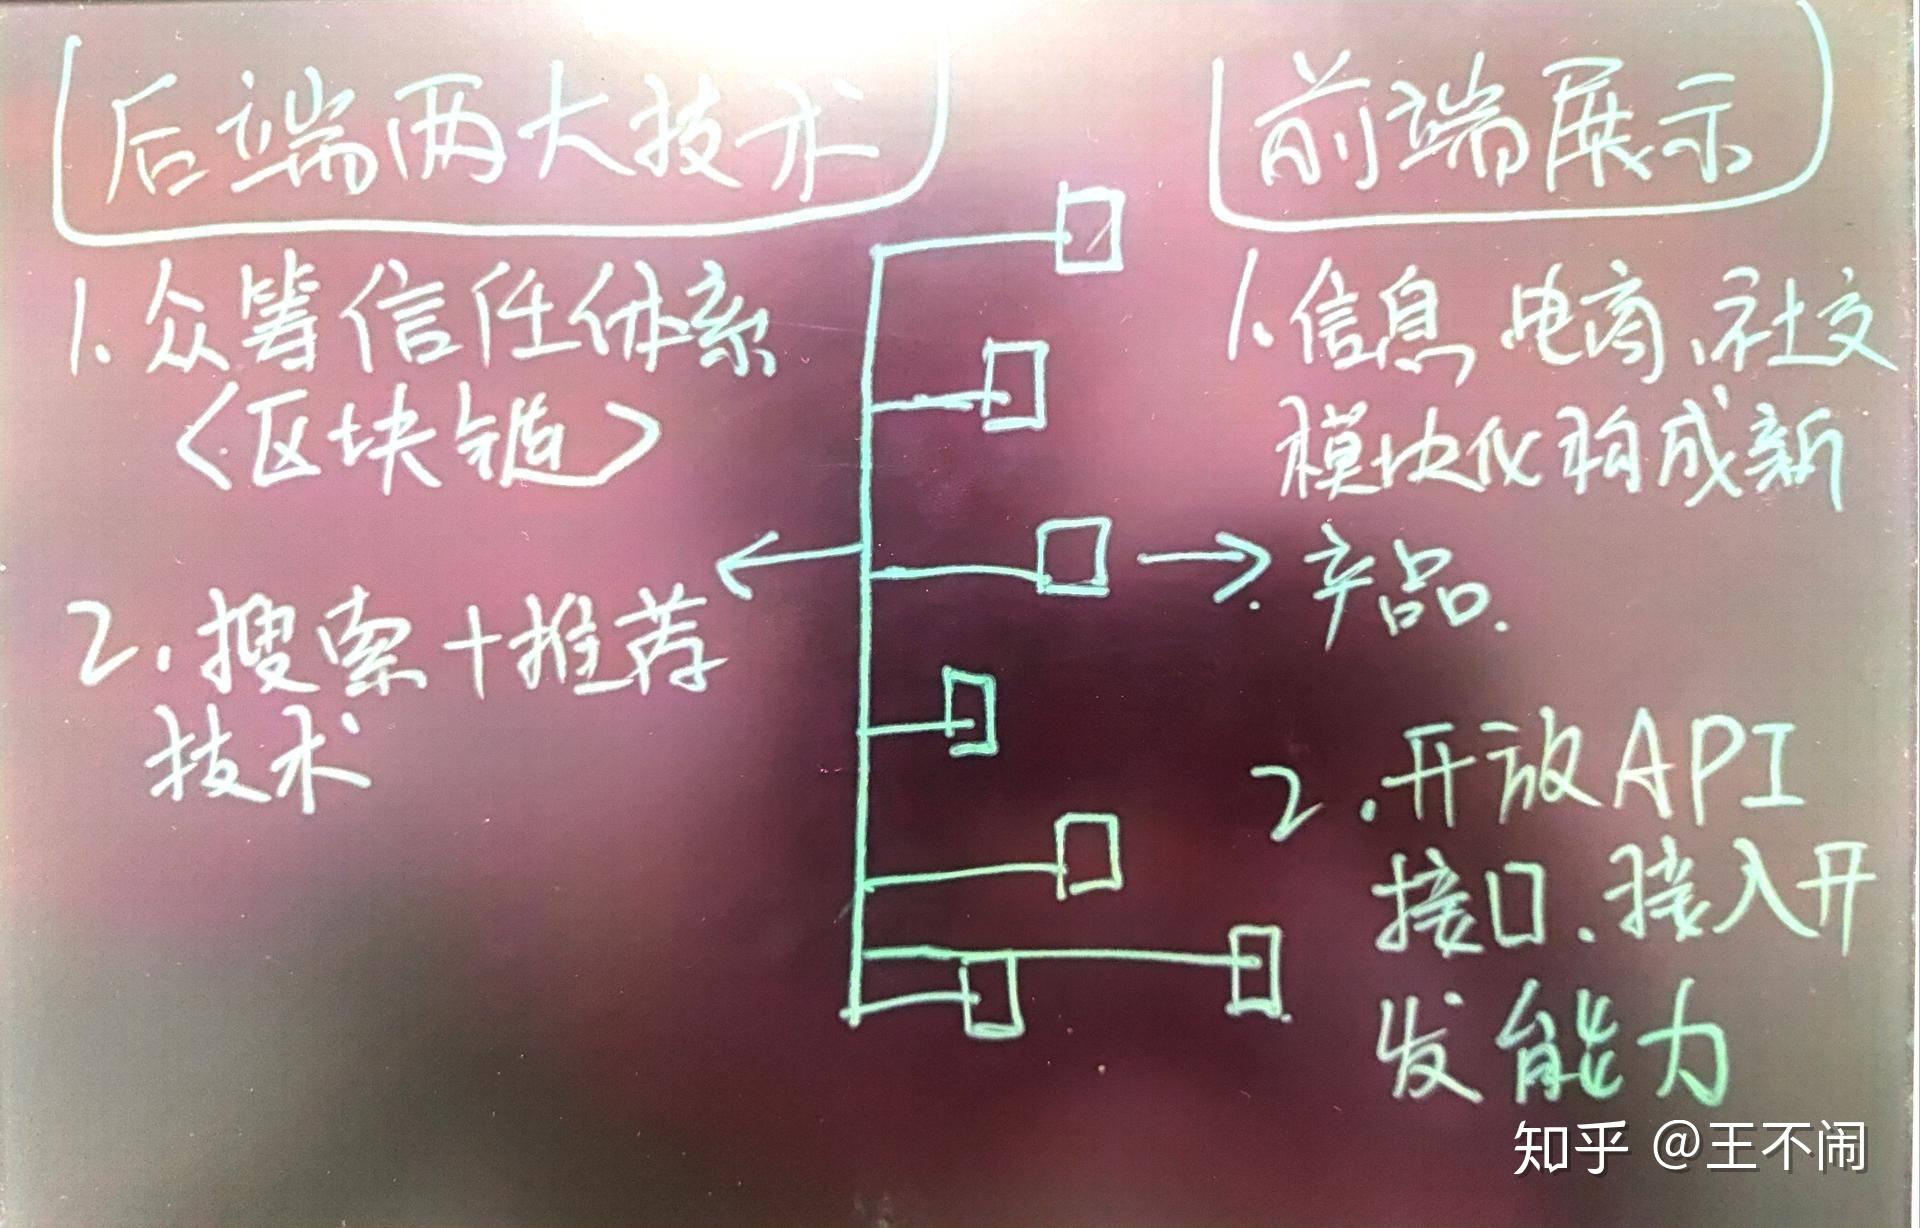 后端两大技术
1.众筹信任体系
<区块链>
2.搜索+推荐
技术
前端展示
1.信息、电商、社交
模块化构成新
产品.
2.开放API
接口.接入开
发能力
知乎 @王不闹